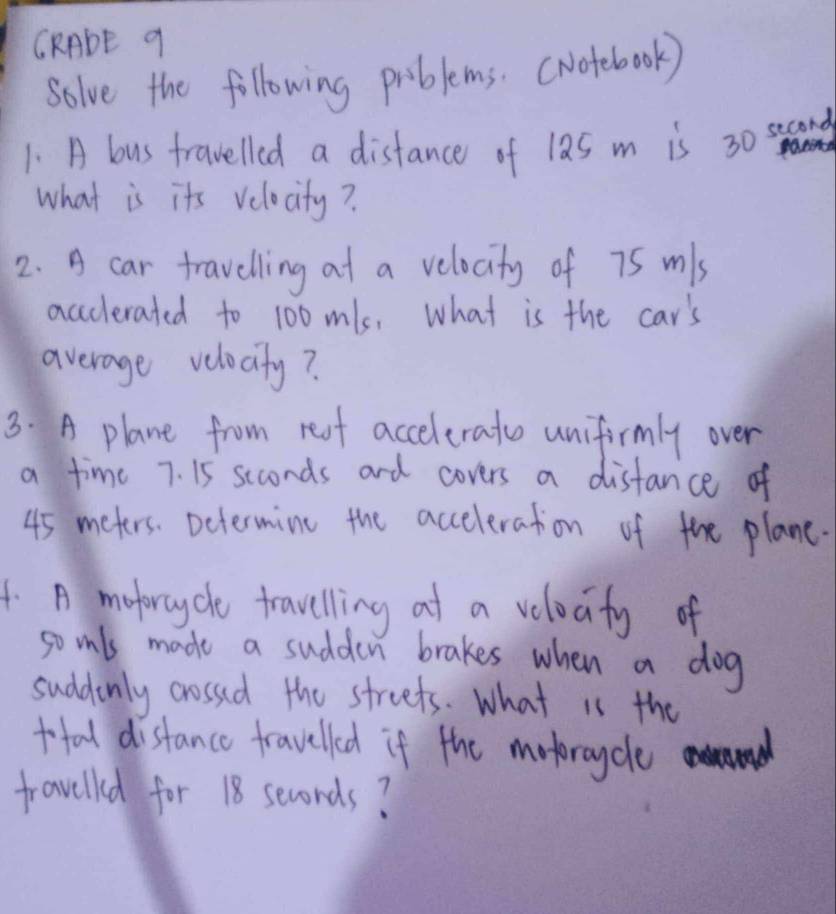 GRADE 9
Solve the following problems. (Notebook)
1. A bus travelled a distance of 125 m is 30 second
What is its velocity?
2. A car travelling at a velocity of 75 m/s
acclerated to 100 m/s. What is the car's
average velocity?
3. A plane from rest accelerates uniformly over
a time 7.15 seconds and covers a distance of
45 meters. Determine the acceleration of the plane.
4. A motorcycle travelling at a velocity of
50 m/s made a sudden brakes when a dog
suddenly crossed the streets. What is the
total distance travelled if the motorcycle
travelled for 18 seconds?